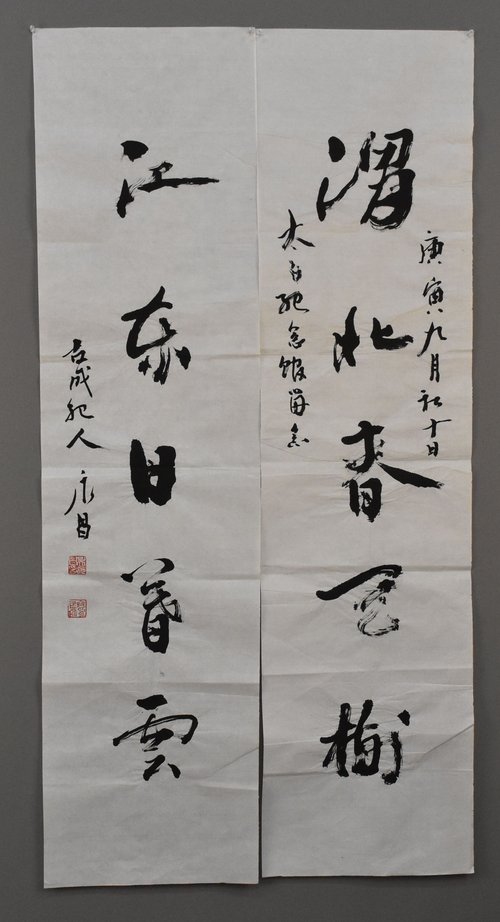 庚寅九月初十日
渭北春天樹
太白纪念馆留念
江东日暮雲
古成纪人 永昌